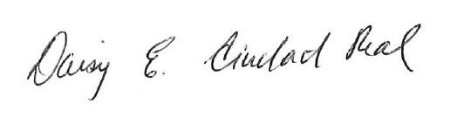 Daisy E. Ciudad Real